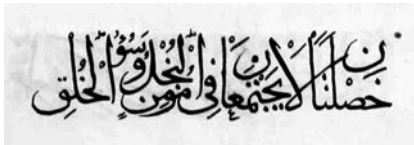 خَصْلَتَانِ لَا يَجْتَمِعَانِ فِي مُؤْمِنٍ الْبُخْلُ وَسُوءُ الْخُلُقِ